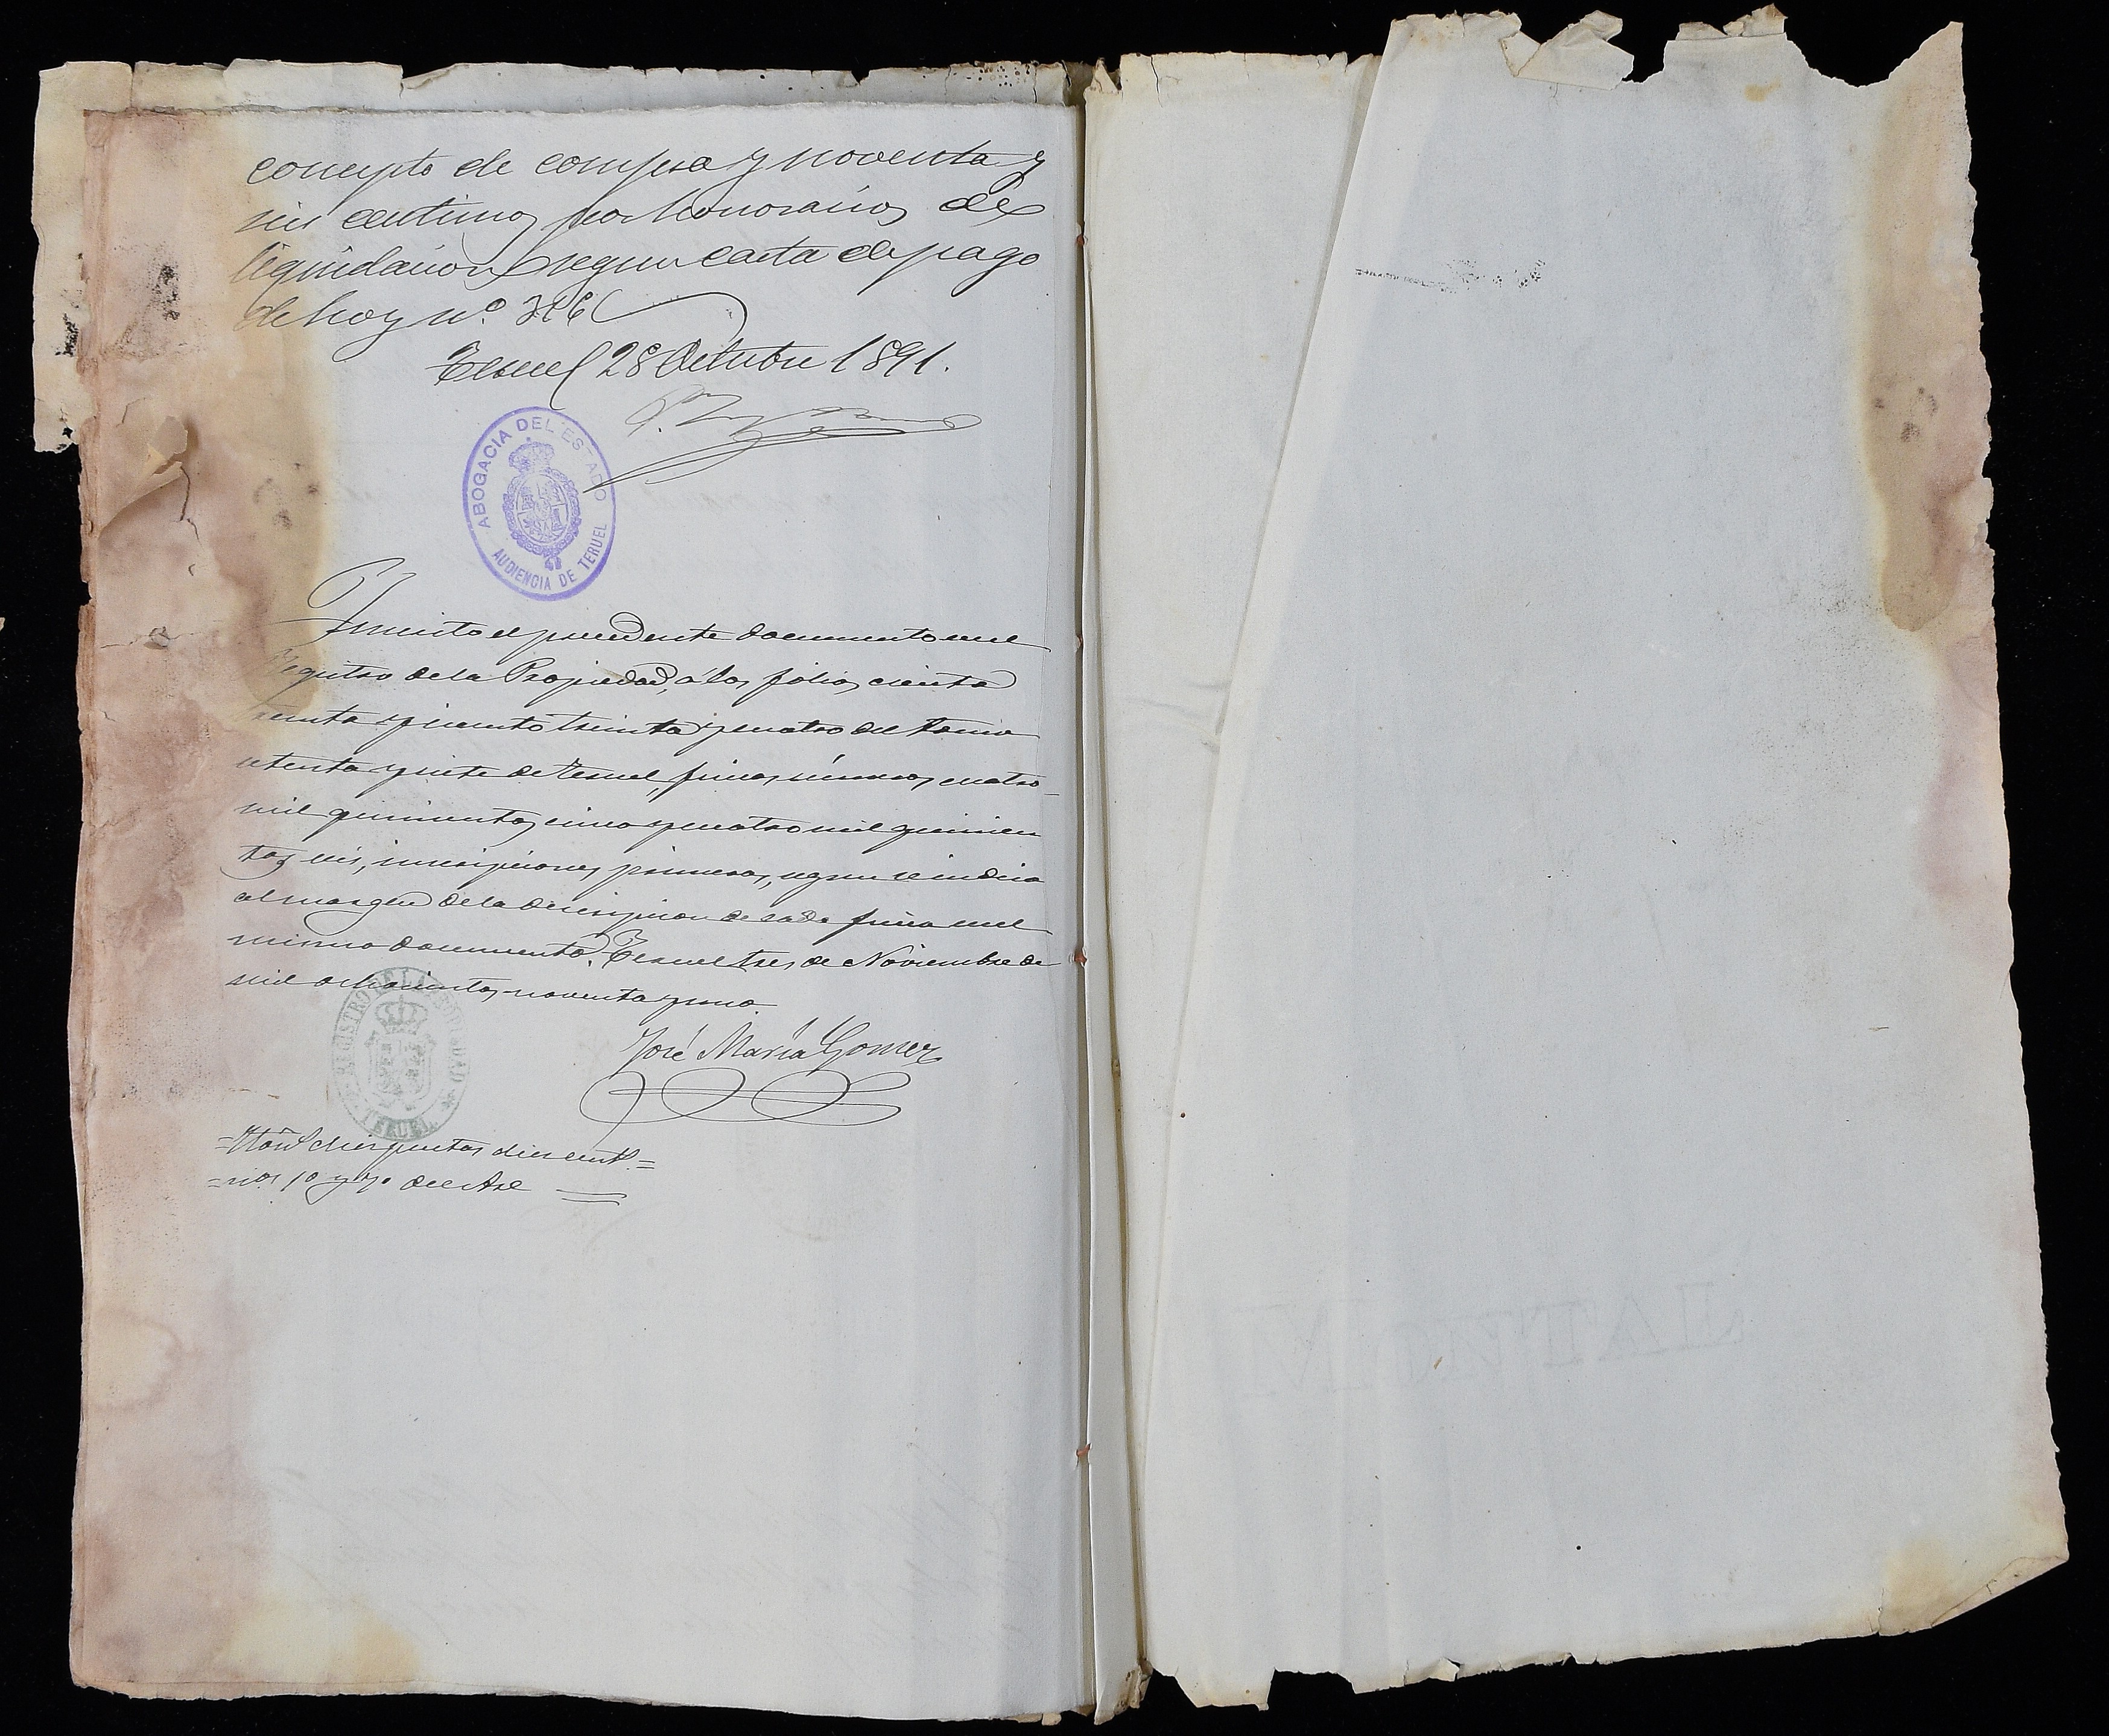 concepto de compra y noventa y
seis centimos por honorarios de
liquidacion segun carta de pago
de hoy nº.
Teruel 28 Octubre 1891.
ABOGACIA DEL ESTADO
AUDIENCIA DE TERUEL
Inscrito el precedente documento en el
Registro de la Propiedad, á los folios ciento
treinta y ciento treinta y cuatro del tomo
setenta y siete de Teruel, fincas números cuatro
mil quinientos cinco y cuatro mil quinien
tos seis, inscripciones primeras, segun se indica
al margen de la descripcion de cada finca en el
mismo documento. Teruel tres de Noviembre de
mil ochocientos noventa y uno.
REGISTRO DE LA PROPIEDAD
TERUEL
José María Gomez
=Honˢ diez pesetas diez centˢ.=
=nos 1º y 7º del Arl